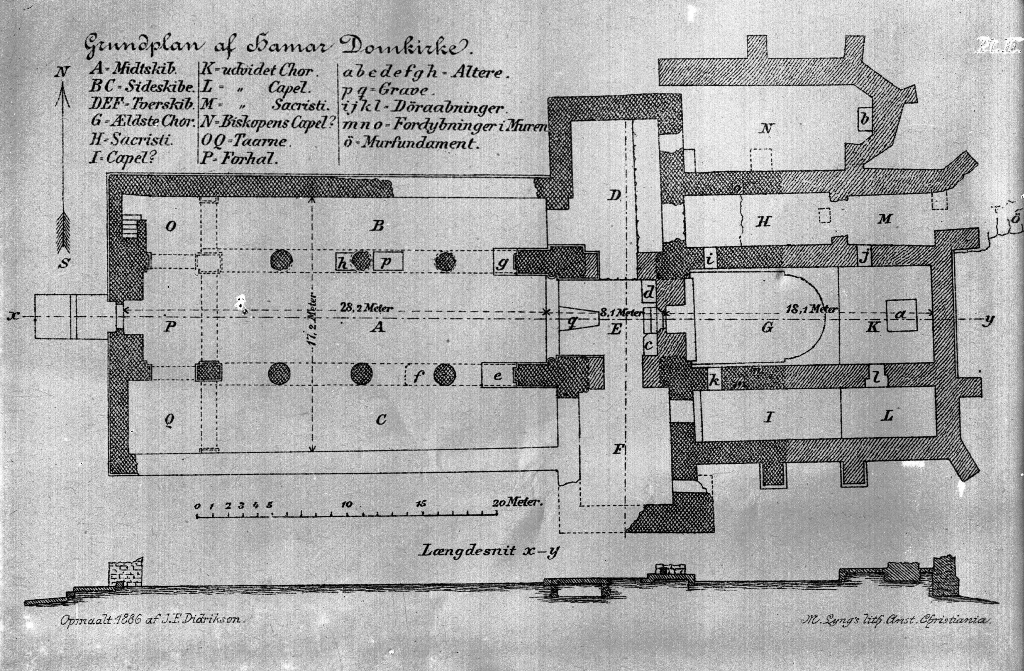 Grundplan af Hamar Domkirke.
N
S
A=Midtskib.
BC=Sideskibe.
DEF=Tverskib.
G=Ældste Chor.
H=Sacristi.
I=Capel?
K=udvidet Chor.
L= „ Capel.
M= „ Sacristi.
N=Biskopens Capel?
OQ=Taarne.
P=Forhal.
abcdefgh=Altere.
pq=Grave.
ijkl=Döraabninger.
mno=Fordybninger i Muren
ö=Murfundament.
N
b
D
H
M
ö
O
B
h
p
g
i
f
d
x
P
28,2 Meter
17,2 Meter
A
q
8,1 Meter
E
G
18,1 Meter
K
a
y
c
f
e
k
m
n
l
Q
C
F
I
L
0 1 2 3 4 5 10 15 20 Meter.
Længdesnit x-y
Opmaalt 1886 af J.E Didrikson.
M. Lyng's lith. Anst. Christiania.